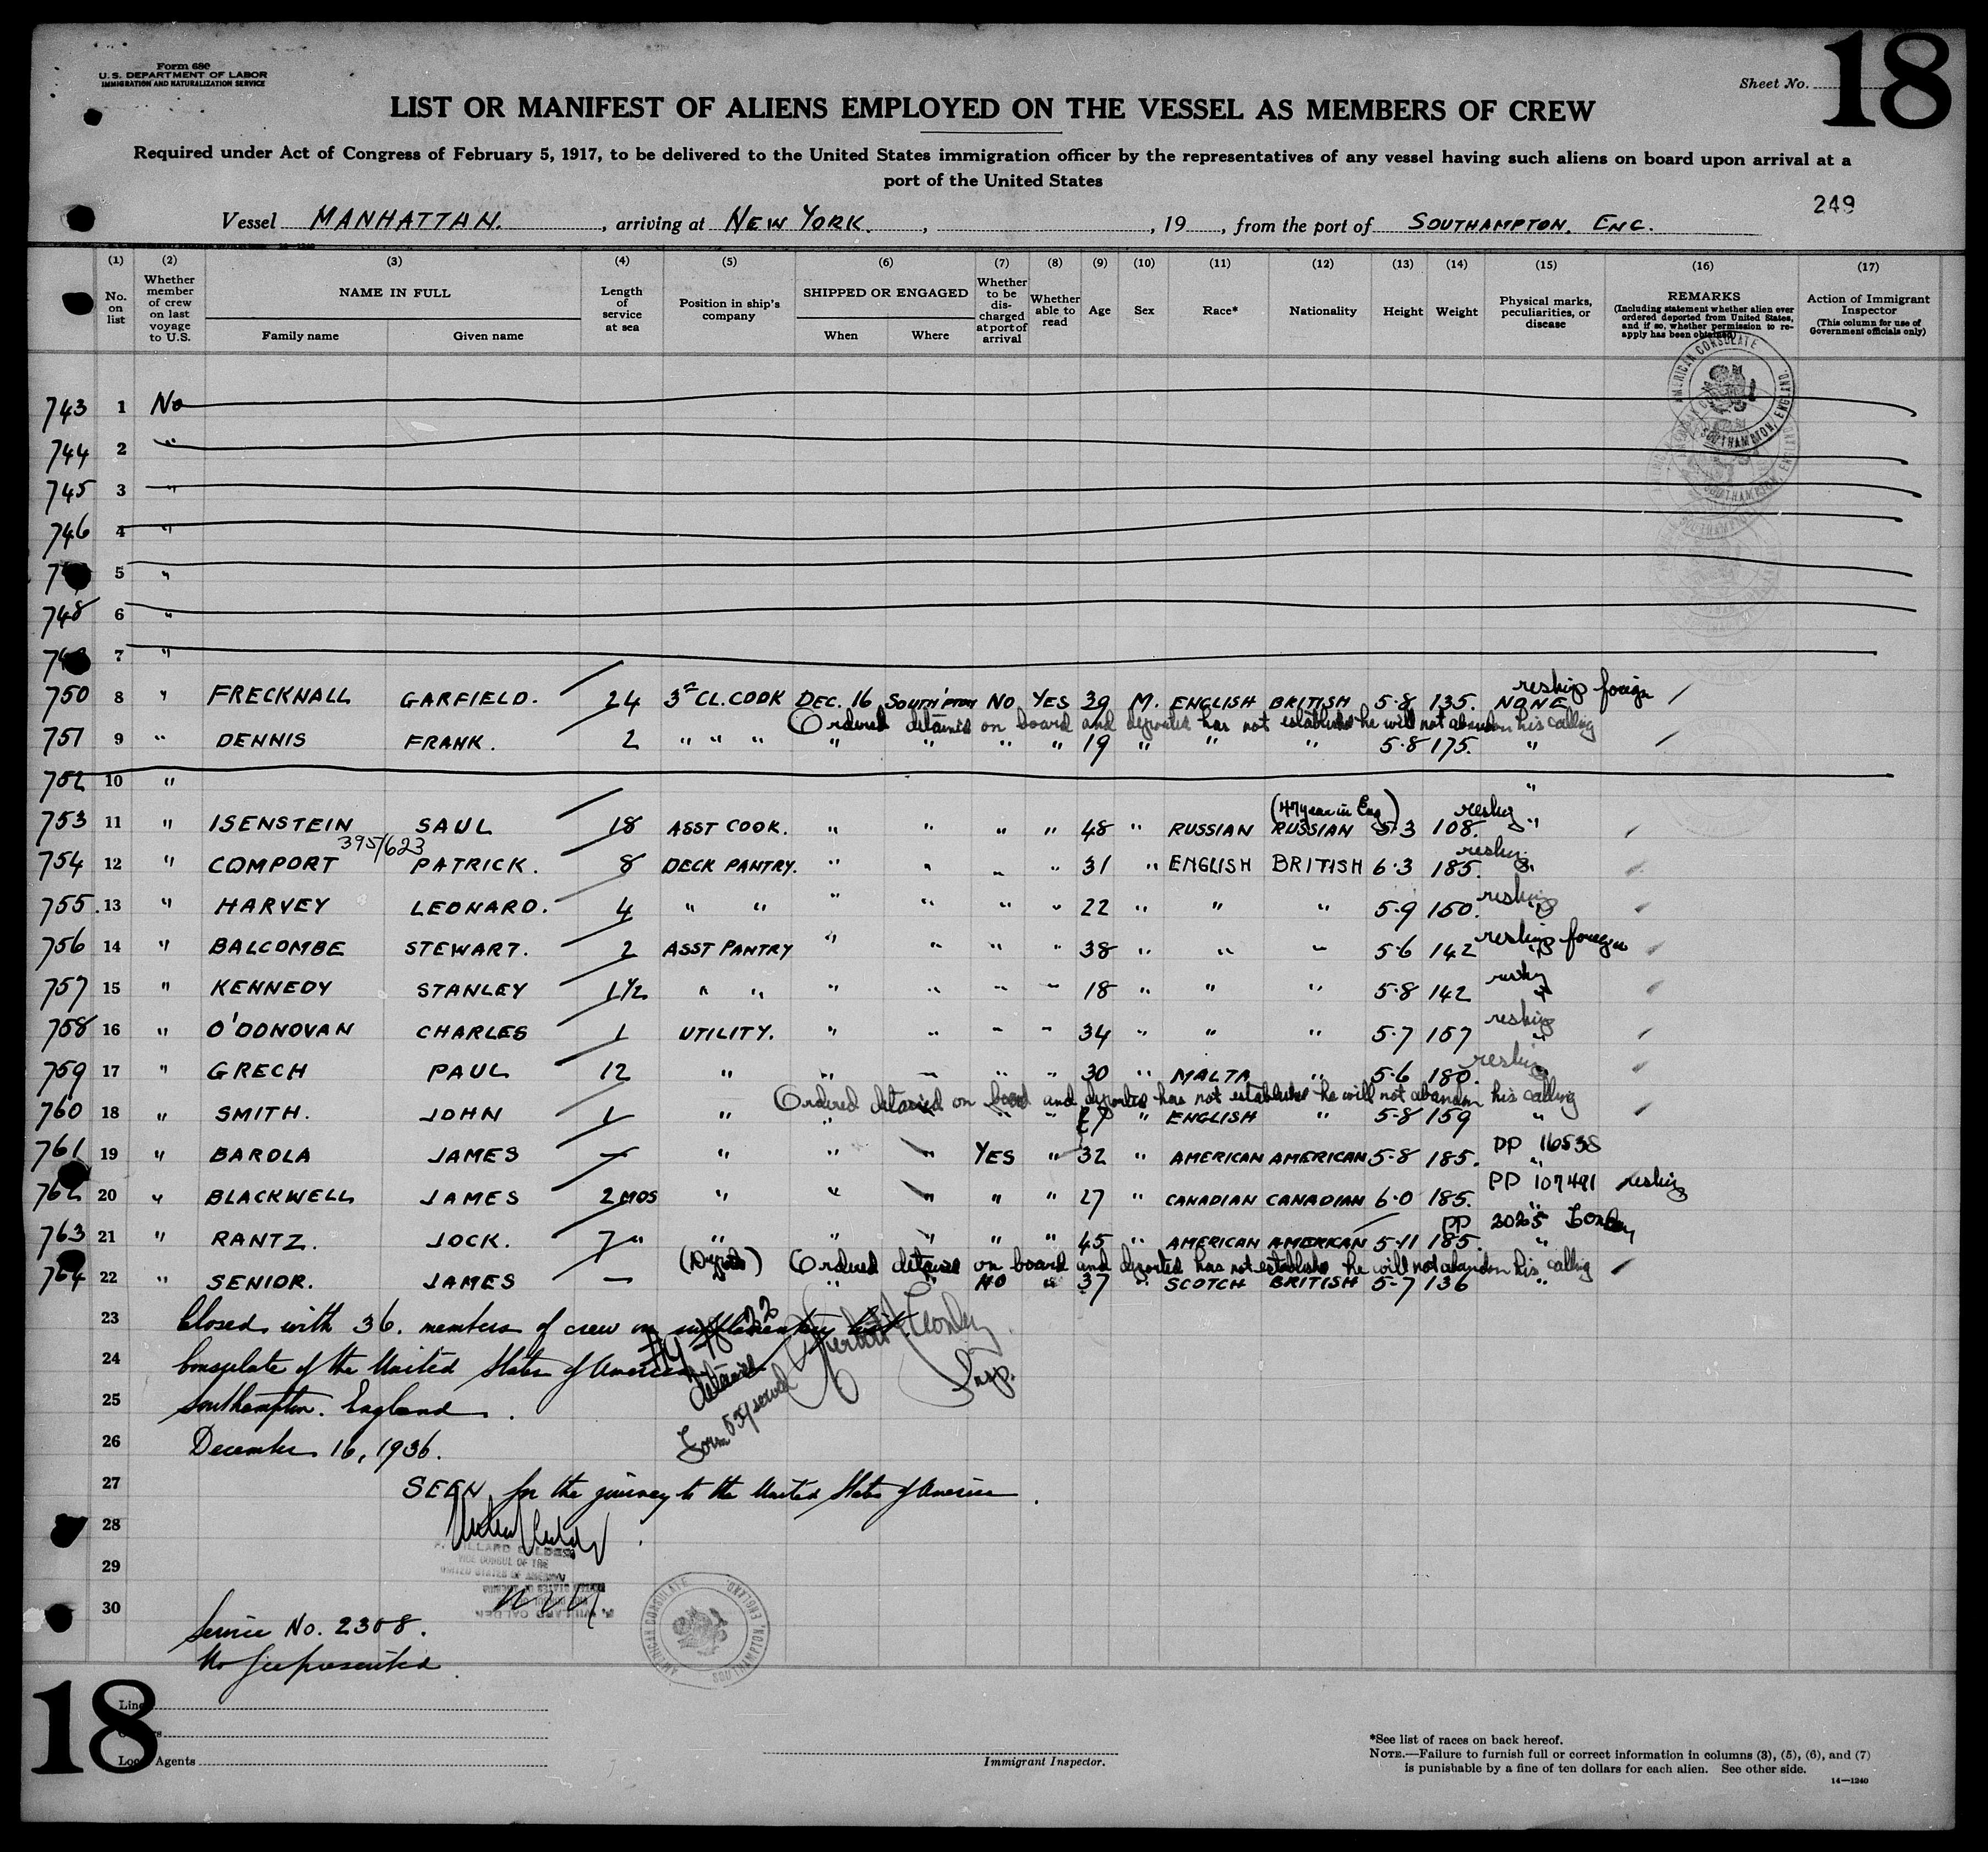 Form 680
U. S. DEPARTMENT OF LABOR
IMMIGRATION AND NATURALIZATION SERVICE
Sheet No. 18
LIST OR MANIFEST OF ALIENS EMPLOYED ON THE VESSEL AS MEMBERS OF CREW
Required under Act of Congress of February 5, 1917, to be delivered to the United States immigration officer by the representatives of any vessel having such aliens on board upon arrival at a
port of the United States
249
Vessel MANHATTAN. , arriving at NEW YORK. , , 19 , from the port of SOUTHAMPTON. ENG.
(1) (2) (3) (4) (5) (6) (7) (8) (9) (10) (11) (12) (13) (14) (15) (16) (17)
No. on list
Whether member of crew on last voyage to U.S.
NAME IN FULL
Family name Given name
Length of service at sea
Position in ship's company
SHIPPED OR ENGAGED
When Where
Whether to be discharged at port of arrival
Whether able to read
Age
Sex
Race*
Nationality
Height
Weight
Physical marks, peculiarities, or disease
REMARKS
(Including statement whether alien ever ordered deported from United States, and if so, whether permission to reapply has been obtained)
Action of Immigrant Inspector
(This column for use of Government officials only)
AMERICAN CONSULATE SOUTHAMPTON, ENGLAND.
743 1 No
744 2 "
745 3 "
746 4 "
5 "
748 6 "
7 "
reship foreign
750 8 " FRECKNALL GARFIELD. 24 3rd CL. COOK DEC. 16 SOUTH'PTON NO YES 39 M. ENGLISH BRITISH 5-8 135. NONE
Ordered detained on board and deported has not established he will not abandon his calling
751 9 " DENNIS FRANK. 2 " " " " " " " 19 " " " 5-8 175. "
752 10 " "
(47 year in Eng) reship
753 11 " ISENSTEIN SAUL 18 ASST COOK. " " " " 48 " RUSSIAN RUSSIAN 5-3 108. "
395/623 reship
754 12 " COMPORT PATRICK. 8 DECK PANTRY. " " " " 31 " ENGLISH BRITISH 6-3 185. "
reship
755. 13 " HARVEY LEONARD. 4 " " " " " " 22 " " " 5-9 150. "
reship foreign
756 14 " BALCOMBE STEWART. 2 ASST PANTRY " " " " 38 " " " 5-6 142 "
reship
757 15 " KENNEDY STANLEY 1½ " " " " " " 18 " " " 5-8 142 "
reship
758 16 " O'DONOVAN CHARLES 1 UTILITY. " " " " 34 " " " 5-7 157 "
reship
759 17 " GRECH PAUL 12 " " " " " 30 " MALTA " 5-6 180. "
Ordered detained on board and deported has not established he will not abandon his calling
760 18 " SMITH. JOHN 1 " " " " " " ENGLISH " 5-8 159 "
PP 16538
761 19 " BAROLA JAMES — " " " YES " 32 " AMERICAN AMERICAN 5-8 185. "
PP 107491 reship
762 20 " BLACKWELL JAMES 2 MOS " " " " " 27 " CANADIAN CANADIAN 6-0 185. "
PP 2025
763 21 " RANTZ. JOCK. 7 " " " " " " 45 " AMERICAN AMERICAN 5-11 185. "
Ordered detained on board and deported has not established he will not abandon his calling
764 22 " SENIOR. JAMES — " " " NO " 37 " SCOTCH BRITISH 5-7 136 "
23 Closed with 36. members of crew on supplementary list
24 Consulate of the United States of America
25 Southampton. England.
26 December 16, 1936.
detained
Form served
Insp.
27 SEEN for the journey to the United States of America.
28
VICE CONSUL OF THE
UNITED STATES OF AMERICA
29
30
AMERICAN CONSULATE SOUTHAMPTON, ENGLAND.
Service No. 2308.
No fee presented
18
Line
Local Agents
Immigrant Inspector.
*See list of races on back hereof.
NOTE.—Failure to furnish full or correct information in columns (3), (5), (6), and (7)
is punishable by a fine of ten dollars for each alien. See other side.
14—1240